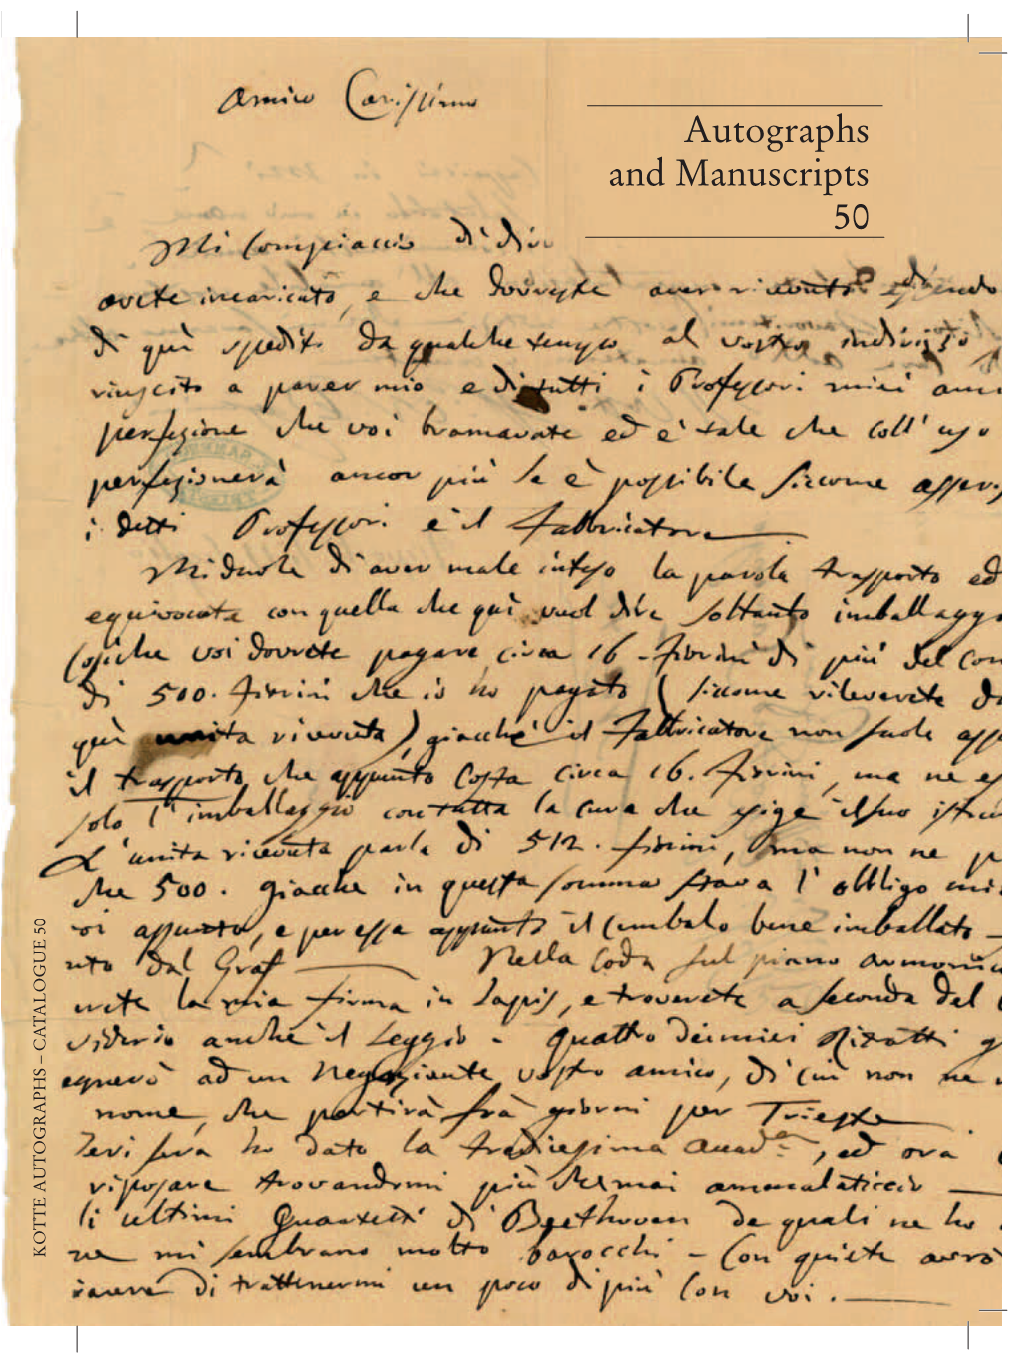 Amico Carissimo
Autographs
and Manuscripts
50
Mi compiaccio di dirvi
avete incaricato, e che dovreste aver ricevuto essendo
di quì spedito da qualche tempo al vostro indirizzo
riuscito a parer mio e di tutti i Professori miei ami
perfezione che voi bramavate ed è tale che coll' uso
perfezionerà ancor più se è possibile siccome asser
i detti Professori e il Fabbricatore
Mi duole di aver male inteso la parola trasporto ed
equivocata con quella che quì vuol dire soltanto imballagg
cosiche voi dovrete pagare circa 16 fiorini di più del con
di 500. fiorini che io ho pagato (siccome rileverete da
quì unita ricevuta), giacche il Fabbricatore non suole
il trasporto, che appunto costa circa 16. fiorini, ma ne
solo l'imballaggio con tutta la cura che esige il suo
L'unita ricevuta parla di 512. fiorini, ma non ne
che 500. giacche in questa somma stava l'obbligo mi
voi assunto, e per essa appunto il cembalo bene imballato
dal Graf Nella coda sul piano armonic
la mia firma in lapis, e troverete a seconda del
viderio anche il leggio - quattro dei miei Ritratti
ad un Negoziante vostro amico, di cui non ne
nome, che partirà frà giorni per Trieste
Ieri sera ho dato la tredicesima Accad.ᵃ, ed ora
riposare trovandomi più che mai ammalaticcio
li ultimi Quartetti di Beethoven de quali ne ho
ne mi sembrano molto barocchi - Con quiete avrò
di trattenermi un poco di più con voi.
KOTTE AUTOGRAPHS – CATALOGUE 50